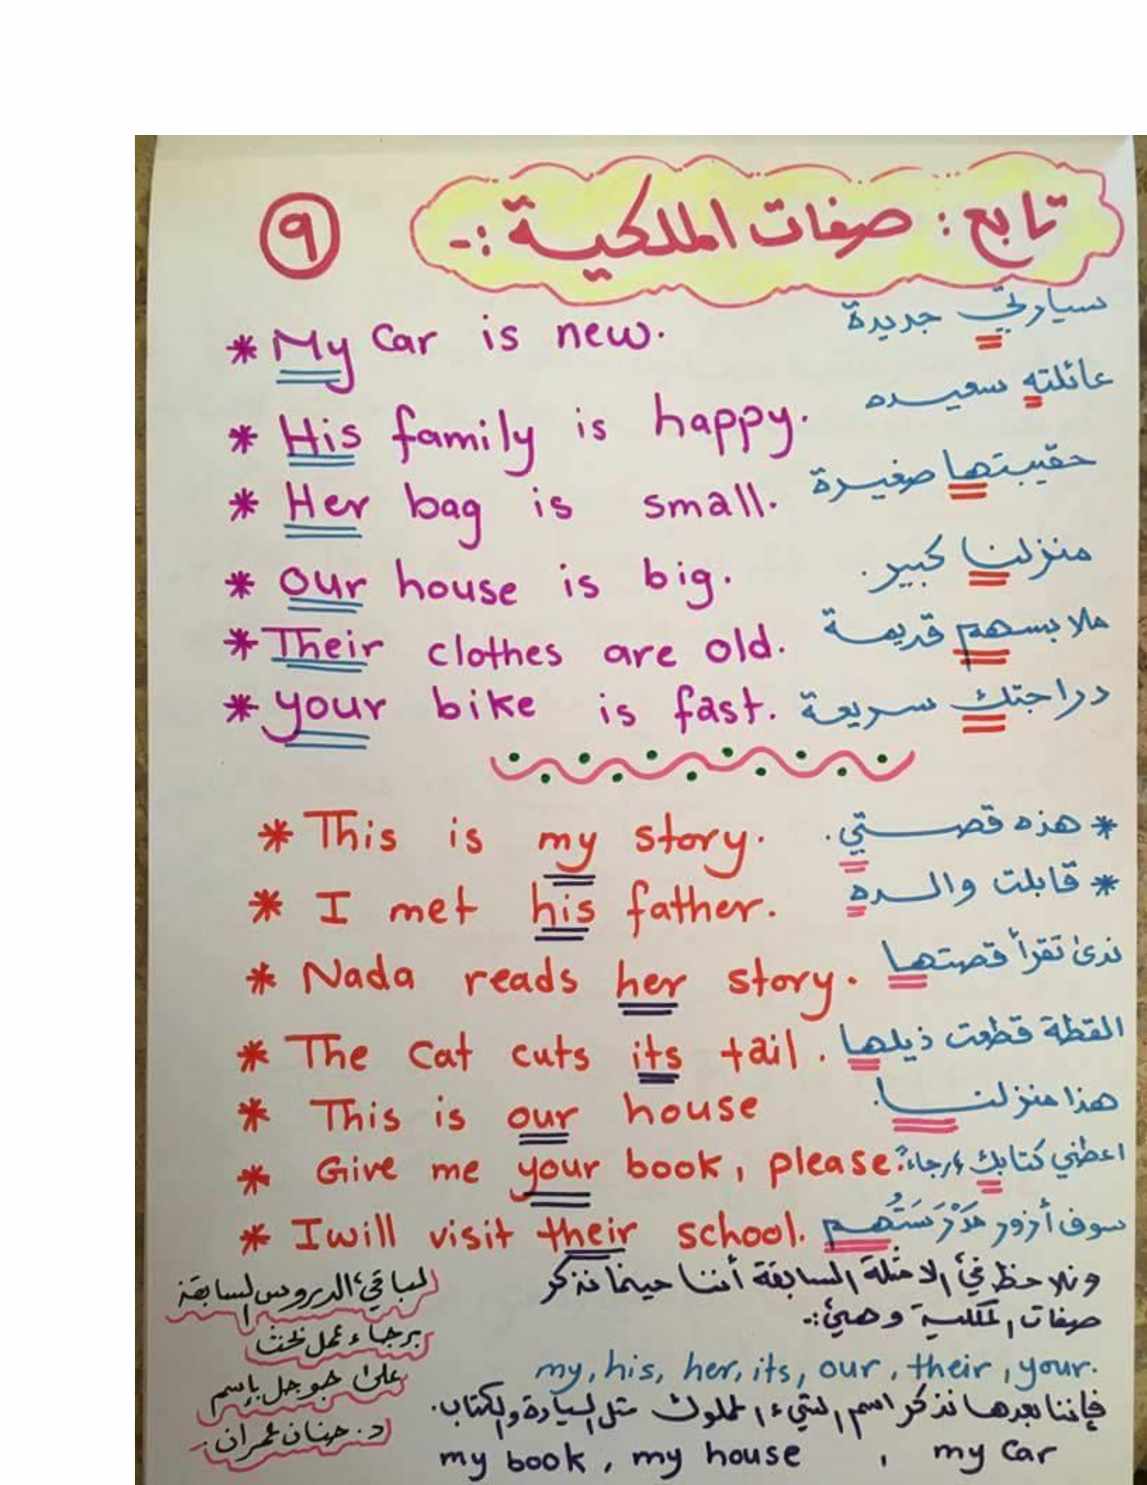 تابع : صفات الملكية :-
٩
* My car is new. سيارتي جديدة
* His family is happy. عائلته سعيده
* Her bag is small. حقيبتها صغيرة
* our house is big. منزلنا كبير.
* Their clothes are old. ملابسهم قديمة
* your bike is fast. دراجتك سريعة
* This is my story. * هذه قصتي.
* I met his father. * قابلت والده
* Nada reads her story. ندى تقرأ قصتها
* The cat cuts its tail. القطة قطعت ذيلها
* This is our house هذا منزلنا.
* Give me your book, please. اعطني كتابك رجاءً
* I will visit their school. سوف أزور مَدْرَسَتُهم
ونلاحظ في الامثلة السابقة أننا حينما نذكر
صفات الملكية وهي :-
my, his, her, its, our, their, your.
فإننا بعدها نذكر اسم الشيء المملوك مثل السيارة والكتاب.
my book, my house , my car
لباقي الدروس السابقة
برجاء عمل بحث
على جوجل بإسم
د. حنان عمران.